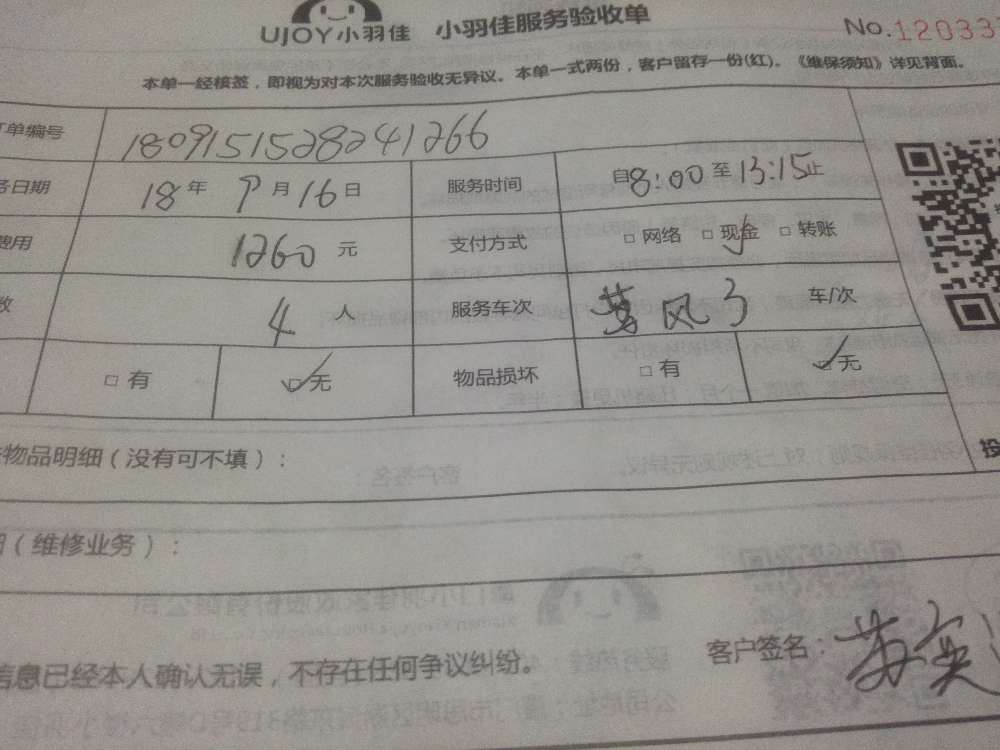 UJOY小羽佳 小羽佳服务验收单 No.12033
本单一经核签，即视为对本次服务验收无异议。本单一式两份，客户留存一份(红)。《维保须知》详见背面。
单编号 1809151528241266
务日期 18年9月16日 服务时间 自8:00至13:15止
费用 1260元 支付方式 □网络 □现金 □转账
数 4人 服务车次 风 3 车/次
□有 □无 物品损坏 □有 □无
物品明细（没有可不填）：
投
（维修业务）：
信息已经本人确认无误，不存在任何争议纠纷。
客户签名：